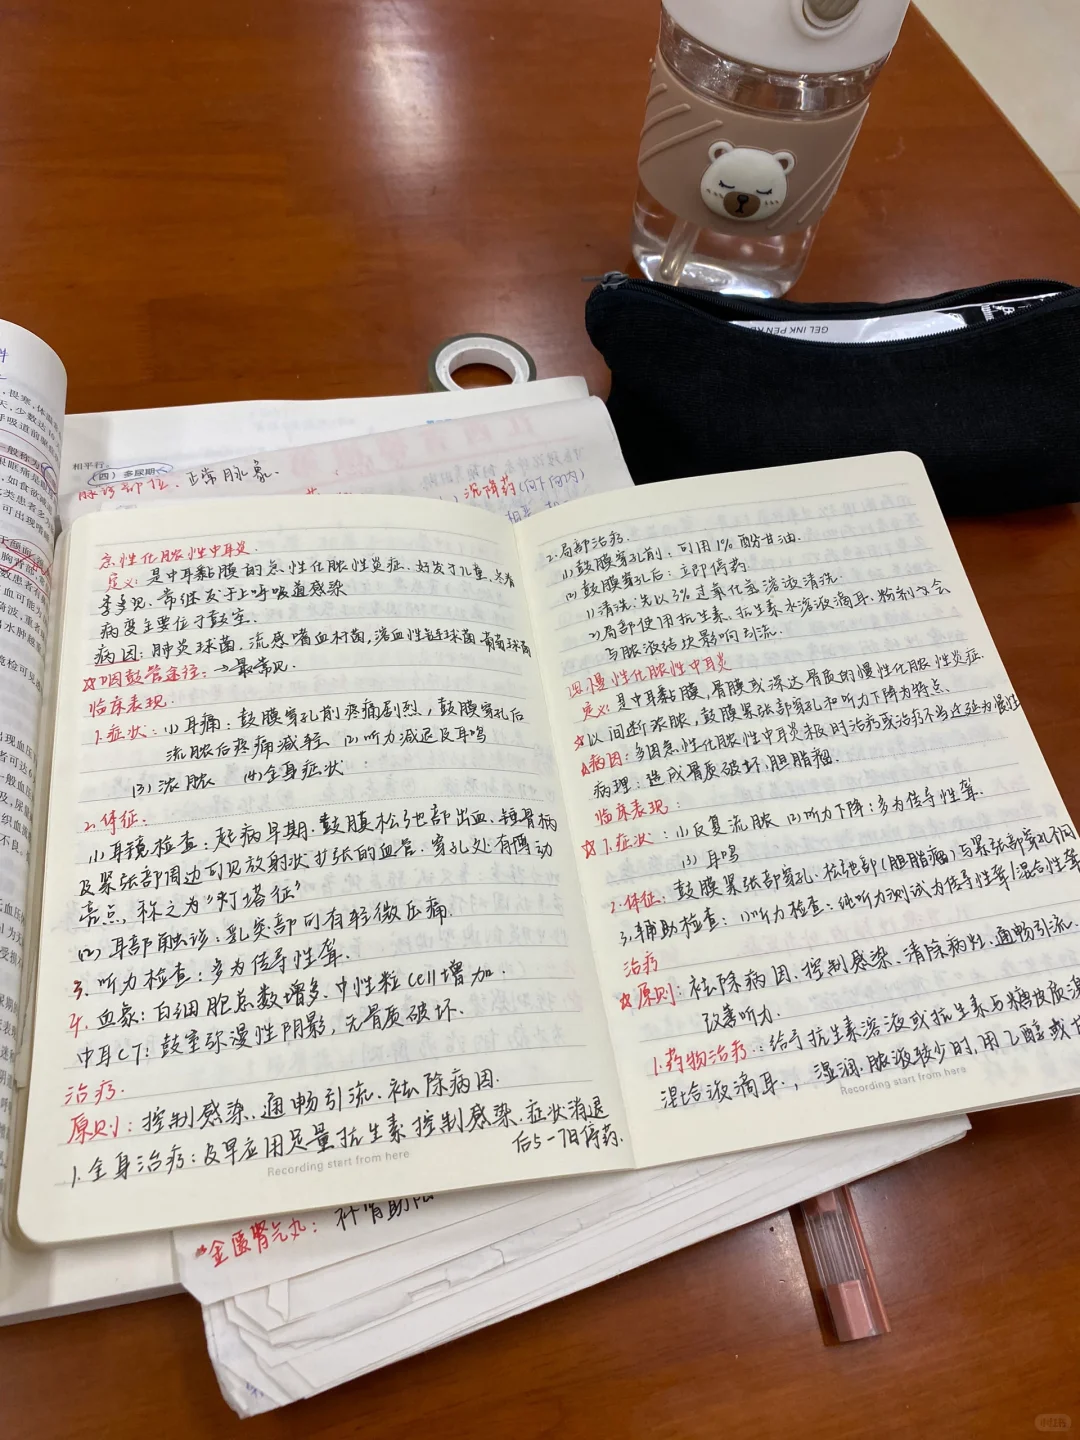 GEL INK PEN
相平行。
(四)多尿期
脉诊部位、正常脉象.
沉降药(向下向内)
急性化脓性中耳炎.
定义:是中耳黏膜的急性化脓性炎症.好发于儿童、冬春
季多见,常继发于上呼吸道感染
病变主要位于鼓室.
病因:肺炎球菌,流感嗜血杆菌,溶血性链球菌 葡萄球菌
☆咽鼓管途径:→最常见.
临床表现.
1.症状:(1)耳痛:鼓膜穿孔前疼痛剧烈,鼓膜穿孔后
流脓后疼痛减轻 (2)听力减退及耳鸣
(3)流脓 (4)全身症状:
2.体征:
(1)耳镜检查:起病早期.鼓膜松弛部出血、锤骨柄
及紧张部周边可见放射状扩张的血管.穿孔处有搏动
亮点,称之为"灯塔征"
(2)耳部触诊:乳突部可有轻微压痛.
3.听力检查:多为传导性聋.
4.血象:白细胞总数增多、中性粒cell增加.
中耳CT:鼓室弥漫性阴影,无骨质破坏.
治疗.
原则:控制感染、通畅引流、祛除病因.
1.全身治疗:及早应用足量抗生素控制感染.症状消退
后5-7日停药.
Recording start from here
2.局部治疗.
(1)鼓膜穿孔前:可用1%酚甘油.
(2)鼓膜穿孔后:立即停药
1)清洗:先以3%过氧化氢溶液清洗.
2)局部使用抗生素、抗生素水溶液滴耳、粉剂不会
与脓液结块影响引流.
四.慢性化脓性中耳炎
定义:是中耳黏膜,骨膜或深达骨质的慢性化脓性炎症.
☆以间断流脓,鼓膜紧张部穿孔和听力下降为特点.
☆病因:多因急性化脓性中耳炎未及时治疗或治疗不当迁延为慢性
病理:造成骨质破坏,胆脂瘤.
临床表现:
☆1.症状:(1)反复流脓 (2)听力下降:多为传导性聋.
(3)耳鸣
2.体征:鼓膜紧张部穿孔.松弛部(胆脂瘤)与紧张部穿孔不同
3.辅助检查:(1)听力检查:纯听力测试为传导性聋/混合性聋
治疗
☆原则:祛除病因、控制感染、清除病灶、通畅引流.
改善听力.
1.药物治疗:给予抗生素溶液或抗生素与糖皮质激
混合液滴耳.,湿润.脓液较少时,用乙醇或甘
Recording start from here
*金匮肾气丸:补肾助阳
小红书